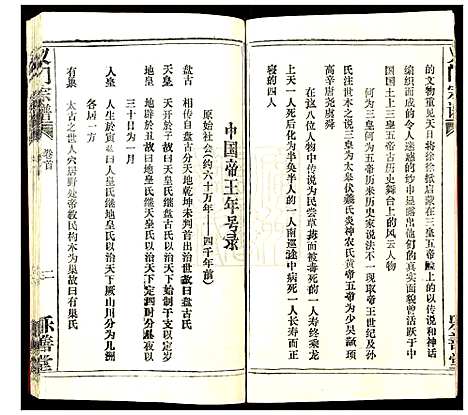 的文物重见天日将徐徐掀启蒙在三皇五帝殿上的以传说和神话
编织而成的令人迷惑的纱巾显露出他们的真实面貌曾活跃于中
国国土上三皇五帝五古历史舞台上的风云人物
何为三皇何为五帝历来历史家说法不一现取帝王世纪及孙
氏注世本之说三皇为太皋伏羲氏炎神农氏黄帝五帝为少昊颛顼
高辛唐尧虞舜
在这八位人物中传说为民尝草药
被毒死的一人寿终乘龙
上天一人死后化为半奂半人的一人南巡途中病死一人长寿而正
寝的四人
中国帝王年号录
原始社会(约六十万年——四千年前)
盘古 相传自盘古分天地乾坤未判首出治世故曰盘古氏
天皇 天开于子故曰天皇氏继盘古氏以治天下始制干支以定岁
地皇 地辟于丑故曰地皇氏继天皇氏以治天下定四时分昼夜以
三十日为一月
人皇 人生于寅故曰人皇氏继地皇氏以治天下厥山川分为九洲
各居一方
有巢 太古之世人穴居野处帝教民构木为巢故曰有巢氏
义门宗谱
卷首
二
乐善堂